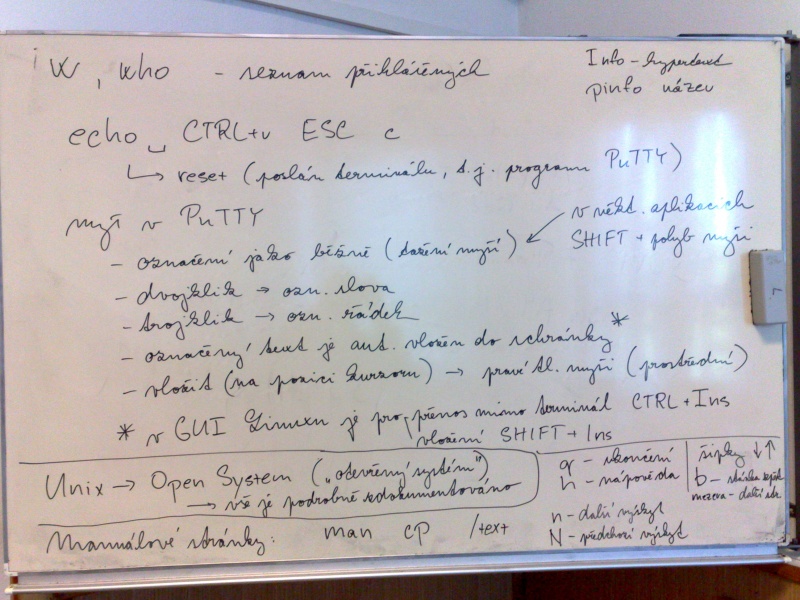 w, who - seznam přihlášených
Info - hypertext
pinfo název
echo ␣ CTRL+v ESC c
↳ reset (poslán terminálu, t.j. programu PuTTY)
myš v PuTTY
v někt. aplikacích
SHIFT + pohyb myši
- označení jako běžně (tažení myší) ←
- dvojklik → ozn. slova
- trojklik → ozn. řádek
- označený text je aut. vložen do schránky *
- vložit (na pozici kurzoru) → pravé tl. myši (prostřední)
* v GUI Linuxu je pro přenos mimo terminál CTRL + Ins
vložení SHIFT + Ins
Unix → Open System („otevřený systém")
→ vše je podrobně zdokumentováno
q - ukončení
h - nápověda
n - další výskyt
N - předchozí výskyt
šipky ↓↑
b - stránka zpět
mezera - další str.
Manuálové stránky: man cp /text